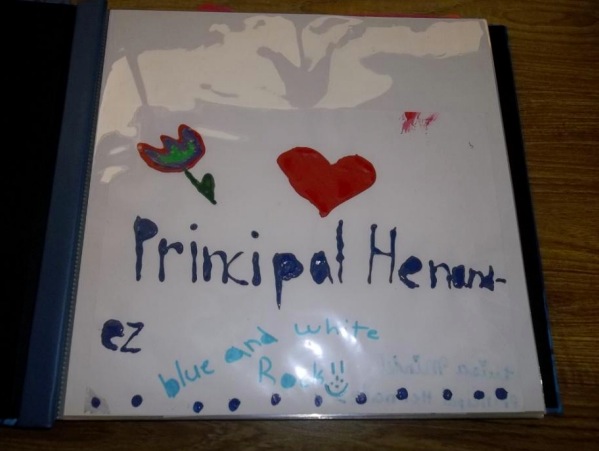 Principal Henand-
ez
blue and white
Rock!!